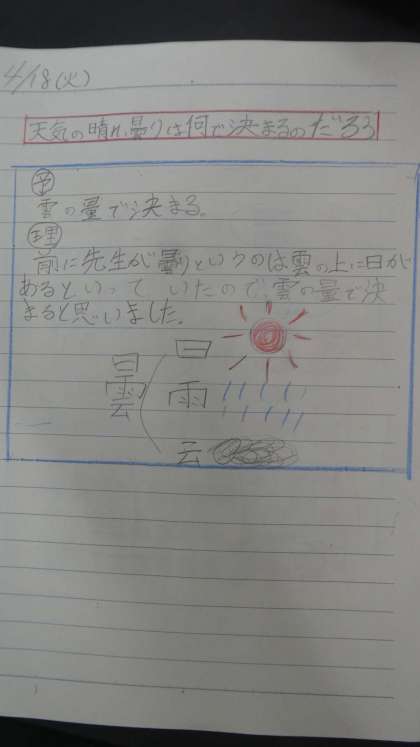 4/18(火)
天気の晴れ、曇りは何で決まるのだろう
予
雲の量で決まる。
理
前に先生が曇りというのは雲の上に日が
あるといっていたので、雲の量で決
まると思いました。
曇
日
雨
云